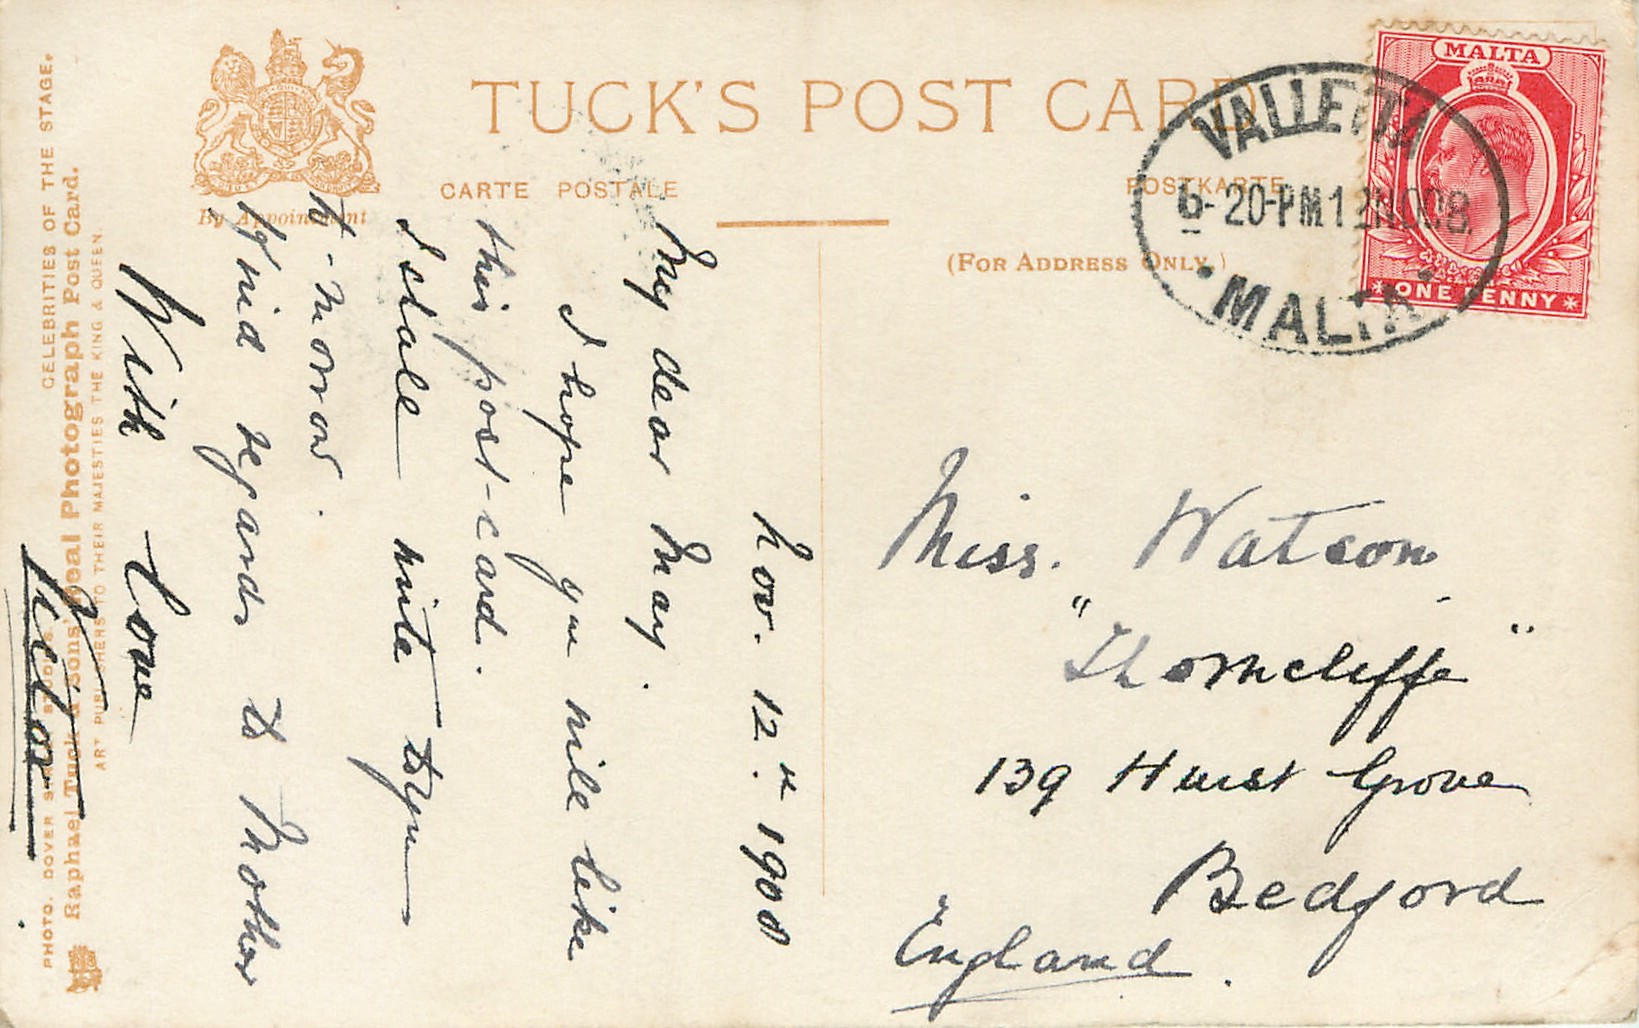 TUCK'S POST CARD
CARTE POSTALE
POSTKARTE
By Appointment
(FOR ADDRESS ONLY.)
MALTA
ONE PENNY
VALLETTA
6-20-PM 12 NO 08
MALTA
Nov. 12th 1908
My dear May.
I hope you will like
this post-card.
I shall write to you
to-morrow.
Kind regards to Mother
With love
Victor
Miss. Watson
"Thorncliffe"
139 Hurst Grove
Bedford
England.
CELEBRITIES OF THE STAGE.
Raphael Tuck & Sons' Real Photograph Post Card.
ART PUBLISHERS TO THEIR MAJESTIES THE KING & QUEEN.
PHOTO. DOVER ST. STUDIOS.